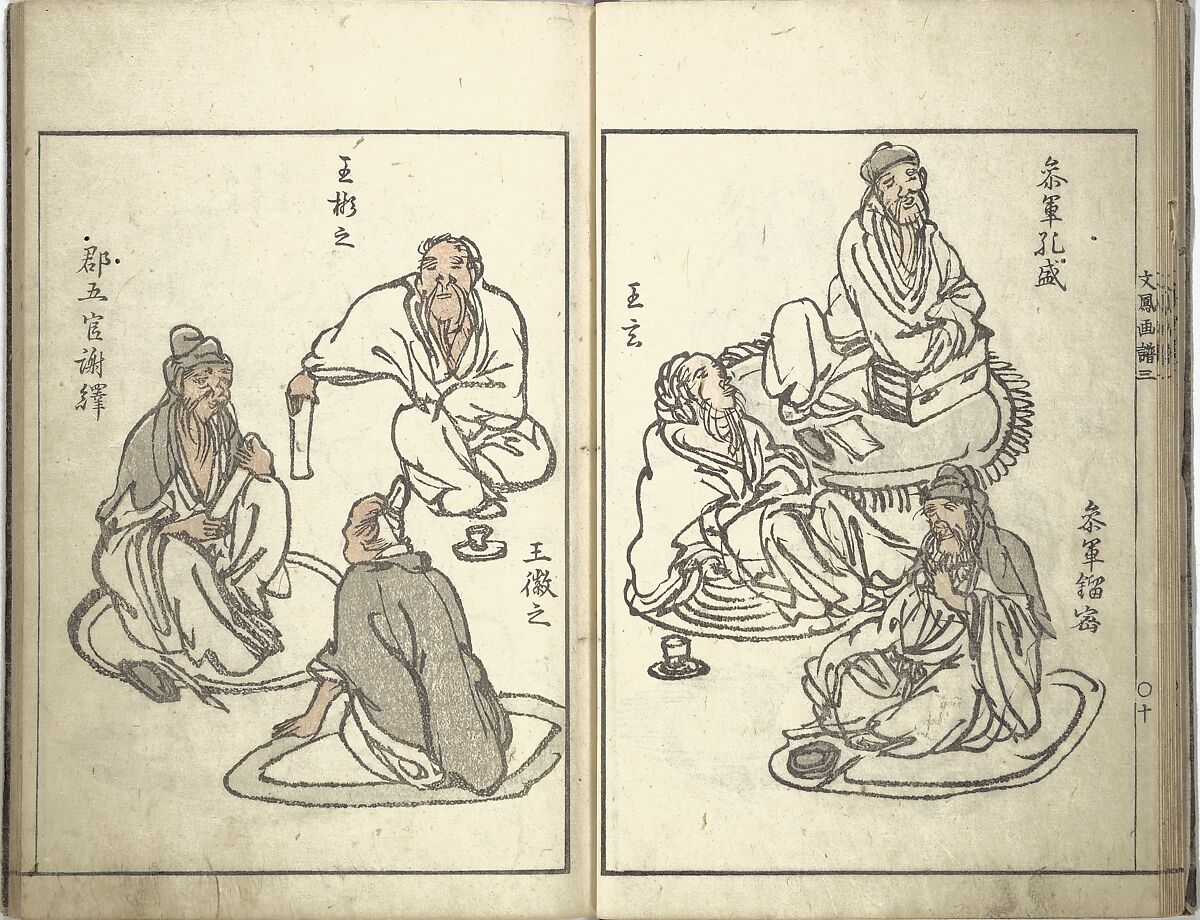 文鳳画譜三
〇十
参軍孔盛
参軍鎦密
王玄
王彬之
王徽之
郡五官謝繹